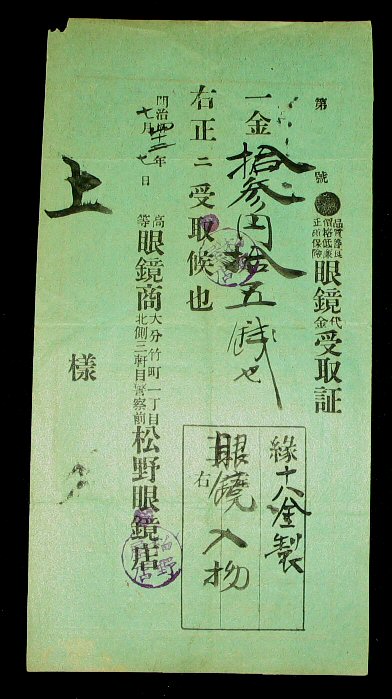 第 號
品質善良
價格低廉
正確保險
眼鏡代金受取証
一金拾参円拾五戋也
右正ニ受取候也
明治四十二年
七月 七日
高等
眼鏡商
大分竹町一丁目
北側三軒目警察前
松野眼鏡店
上
様
縁十八金製
眼鏡入物
右